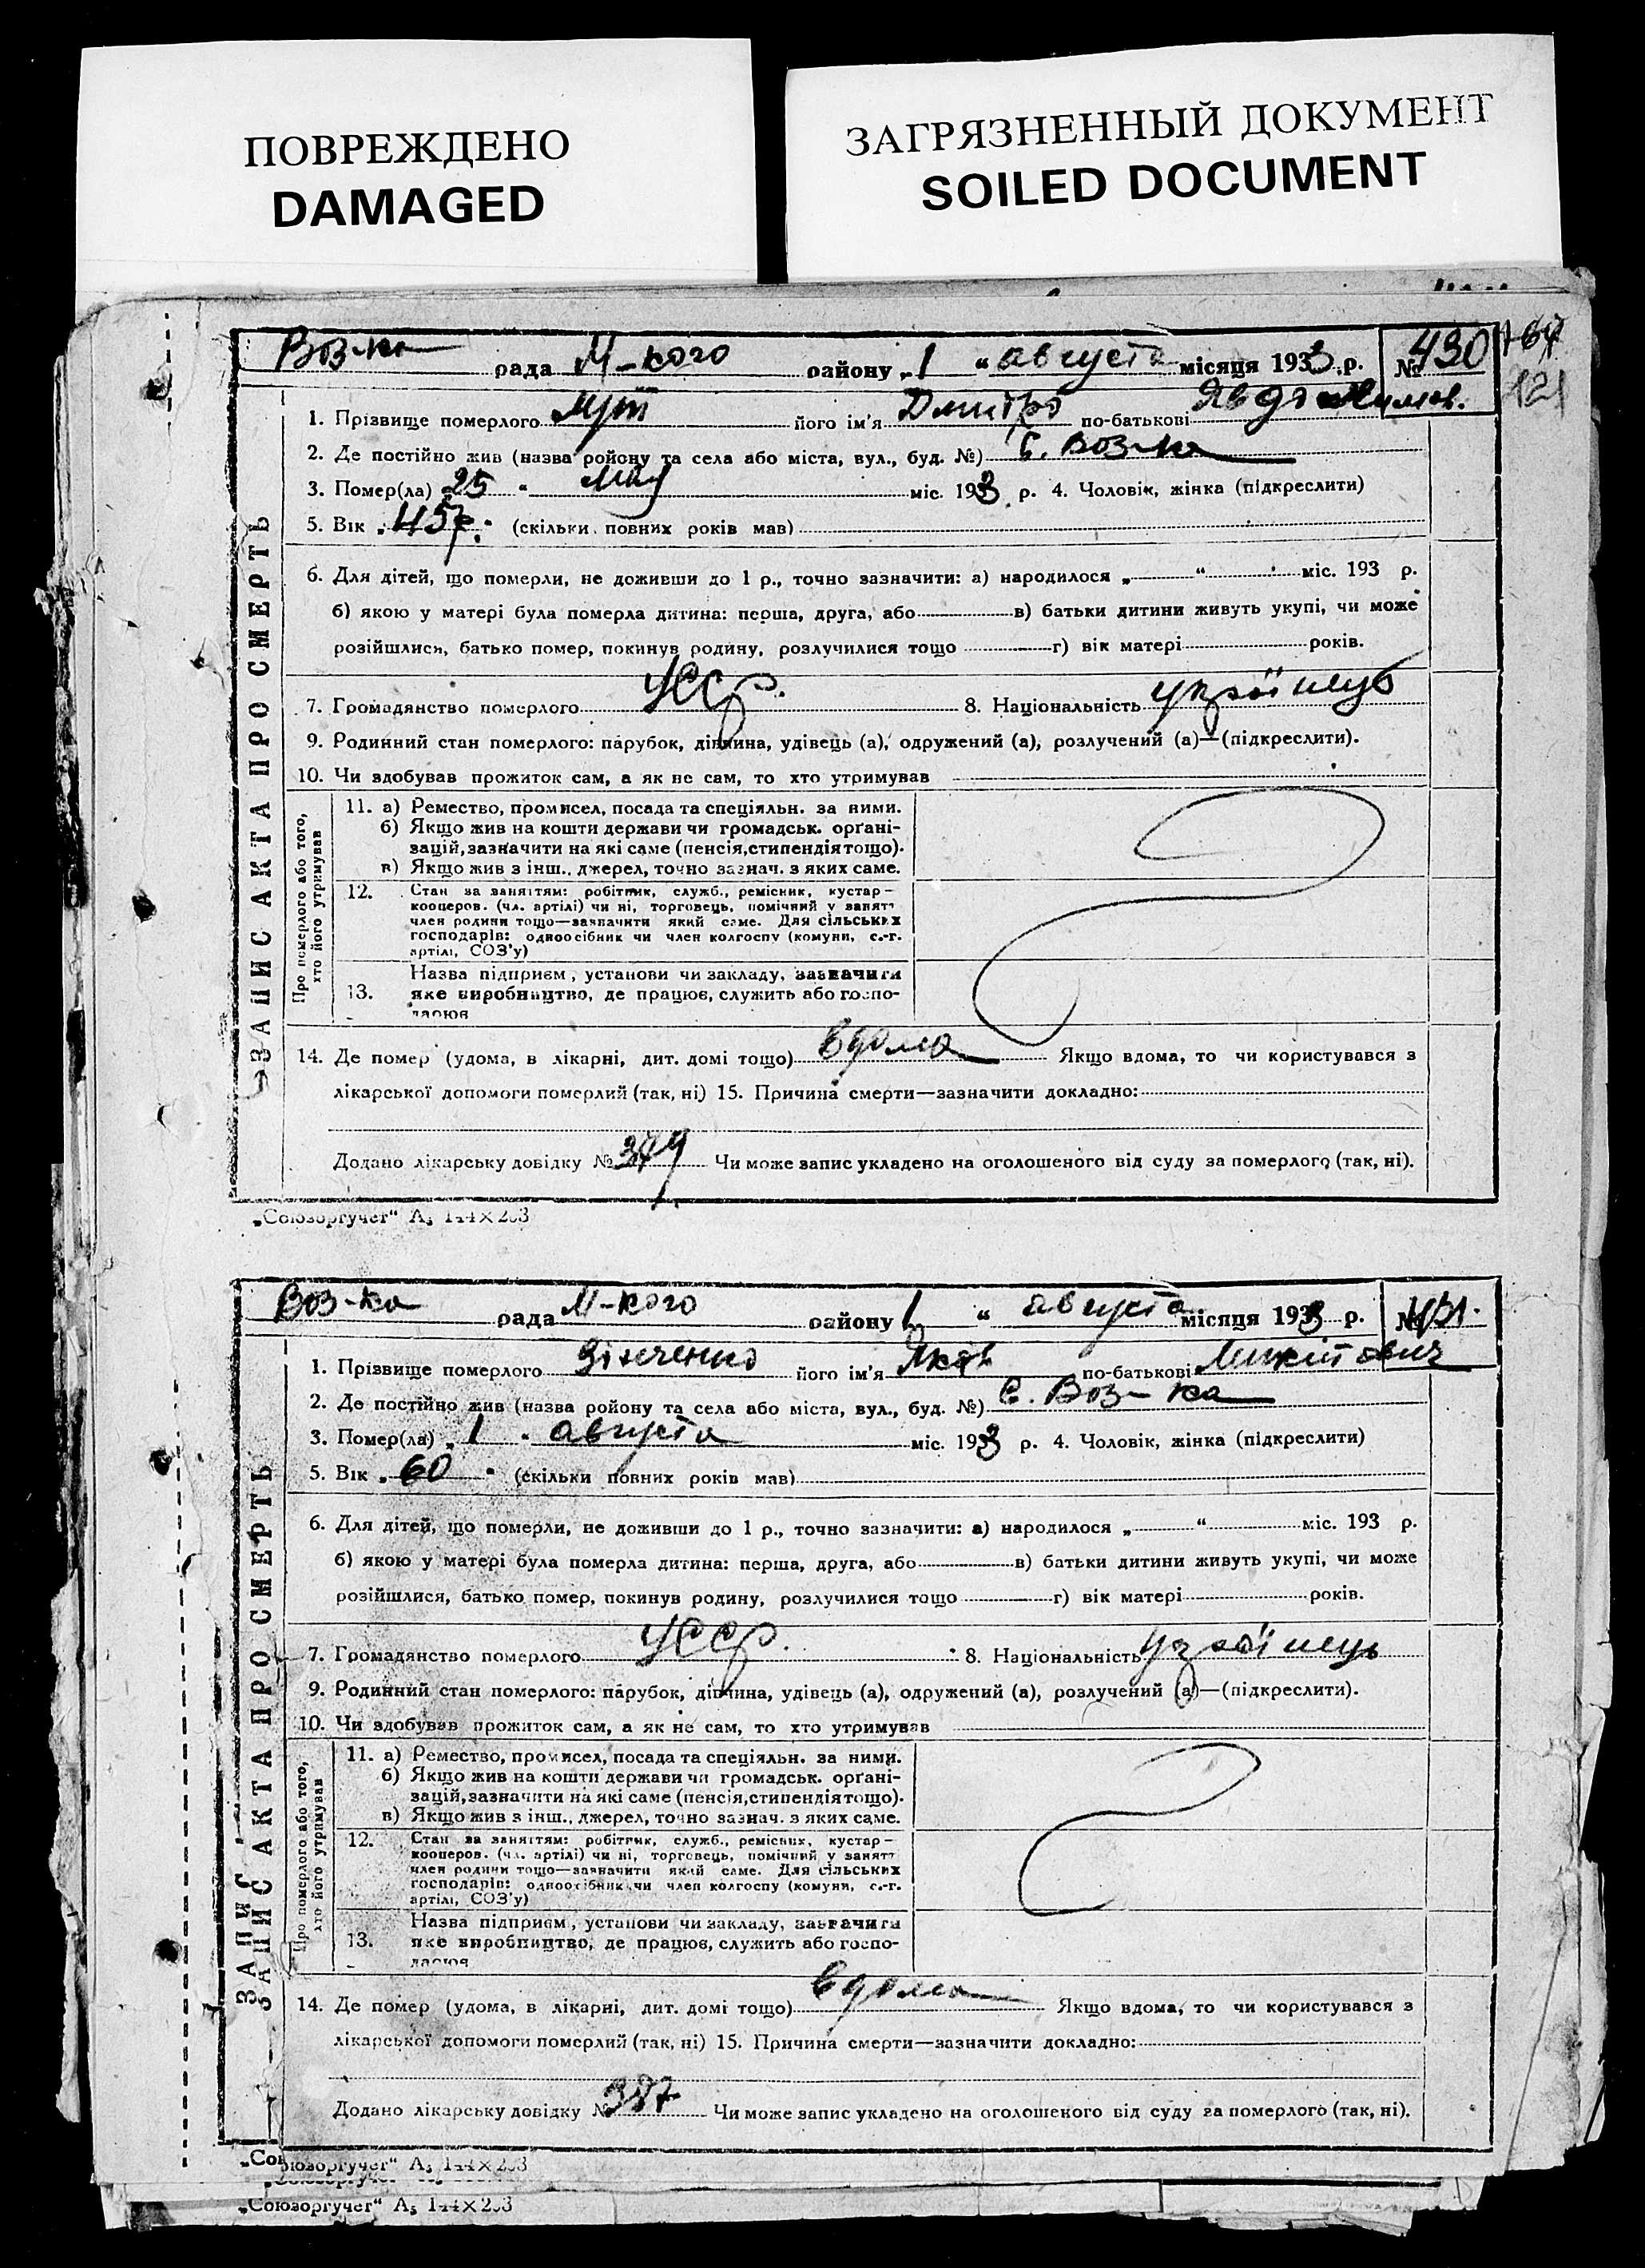 ПОВРЕЖДЕНО
DAMAGED
ЗАГРЯЗНЕННЫЙ ДОКУМЕНТ
SOILED DOCUMENT
Воз-ка рада М-кого району „1 “ августа місяця 1933 р. № 430
121
1. Прізвище померлого його ім'я Дмитро по-батькові
2. Де постійно жив (назва ройону та села або міста, вул., буд. №) С. Воз-ка
3. Помер(ла) 25 “ мая міс. 1933 р. 4. Чоловік, жінка (підкреслити)
5. Вік „ 45 (скільки повних років мав)
6. Для дітей, що померли, не доживши до 1 р., точно зазначити: а) народилося „ “ міс. 193 р.
б) якою у матері була померла дитина: перша, друга, або в) батьки дитини живуть укупі, чи може
розійшлися, батько помер, покинув родину, розлучилися тощо г) вік матері років.
7. Громадянство померлого УССР. 8. Національність українець
9. Родинний стан померлого: парубок, дівчина, удівець (а), одружений (а), розлучений (а)—(підкреслити).
10. Чи здобував прожиток сам, а як не сам, то хто утримував
ЗАПИС АКТА ПРО СМЕРТЬ
Про померлого або того,
хто його утримував
11. а) Ремество, промисел, посада та спеціяльн. за ними.
б) Якщо жив на кошти держави чи громадськ. орґані-
зацій, зазначити на які саме (пенсія, стипендія тощо).
в) Якщо жив з інш., джерел, точно зазнач. з яких саме.
12. Стан за заняттям: робітник, служб., ремісник, кустар—
кооперов. (чл. артілі) чи ні, торговець, помічний у занятт
член родини тощо—зазначити який саме. Для сільських
господарів: одноосібник чи член колгоспу (комуни, с.-г.
артілі, СОЗ'у)
Назва підприєм, установи чи закладу, зазначити
13. яке виробництво, де працює, служить або госпо-
дарює
14. Де помер (удома, в лікарні, дит. домі тощо) вдома Якщо вдома, то чи користувався з
лікарської допомоги померлий (так, ні) 15. Причина смерти—зазначити докладно:
Додано лікарську довідку № 379 Чи може запис укладено на оголошеного від суду за померлого (так, ні).
„Союзоргучет“ А5 144×203
Воз-ка рада М-кого району 1 “ августа місяця 1933 р. № 431.
1. Прізвище померлого Зінченко його ім'я Яків по-батькові Микитович
2. Де постійно жив (назва ройону та села або міста, вул., буд. №) С. Воз-ка
3. Помер(ла) „ 1 августа міс. 1933 р. 4. Чоловік, жінка (підкреслити)
5. Вік „ 60 (скільки повних років мав)
6. Для дітей, що померли, не доживши до 1 р., точно зазначити: а) народилося „ “ міс. 193 р.
б) якою у матері була померла дитина: перша, друга, або в) батьки дитини живуть укупі, чи може
розійшлися, батько помер, покинув родину, розлучилися тощо г) вік матері років.
7. Громадянство померлого УССР. 8. Національність українець
9. Родинний стан померлого: парубок, дівчина, удівець (а), одружений (а), розлучений (а)—(підкреслити).
10. Чи здобував прожиток сам, а як не сам, то хто утримував
ЗАПИС АКТА ПРО СМЕРТЬ
ЗАПИС
Про померлого або того,
хто його утримував
11. а) Ремество, промисел, посада та спеціяльн. за ними.
б) Якщо жив на кошти держави чи громадськ. орґані-
зацій, зазначити на які саме (пенсія, стипендія тощо).
в) Якщо жив з інш., джерел, точно зазнач. з яких саме.
12. Стан за заняттям: робітник, служб., ремісник, кустар—
кооперов. (чл. артілі) чи ні, торговець, помічний у занятт
член родини тощо—зазначити який саме. Для сільських
господарів: одноосібник чи член колгоспу (комуни, с.-г.
артілі, СОЗ'у)
Назва підприєм, установи чи закладу, зазначити
13. яке виробництво, де працює, служить або госпо-
дарює
14. Де помер (удома, в лікарні, дит. домі тощо) вдома Якщо вдома, то чи користувався з
лікарської допомоги померлий (так, ні) 15. Причина смерти—зазначити докладно:
Додано лікарську довідку № 387 Чи може запис укладено на оголошеного від суду за померлого (так, ні).
„Союзоргучет“ А5 144×203
„Союзоргучет“ А5 144×203